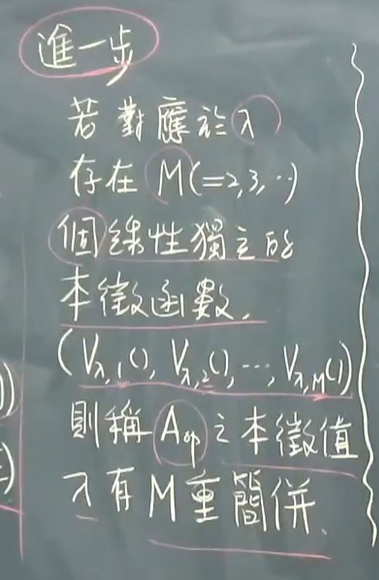 進一步
若對應於λ
存在M(=2,3,…)
個線性獨立的
本徵函數,
(V_{λ,1}(), V_{λ,2}(), …, V_{λ,M}())
則稱A_{op}之本徵值
λ有M重簡併.